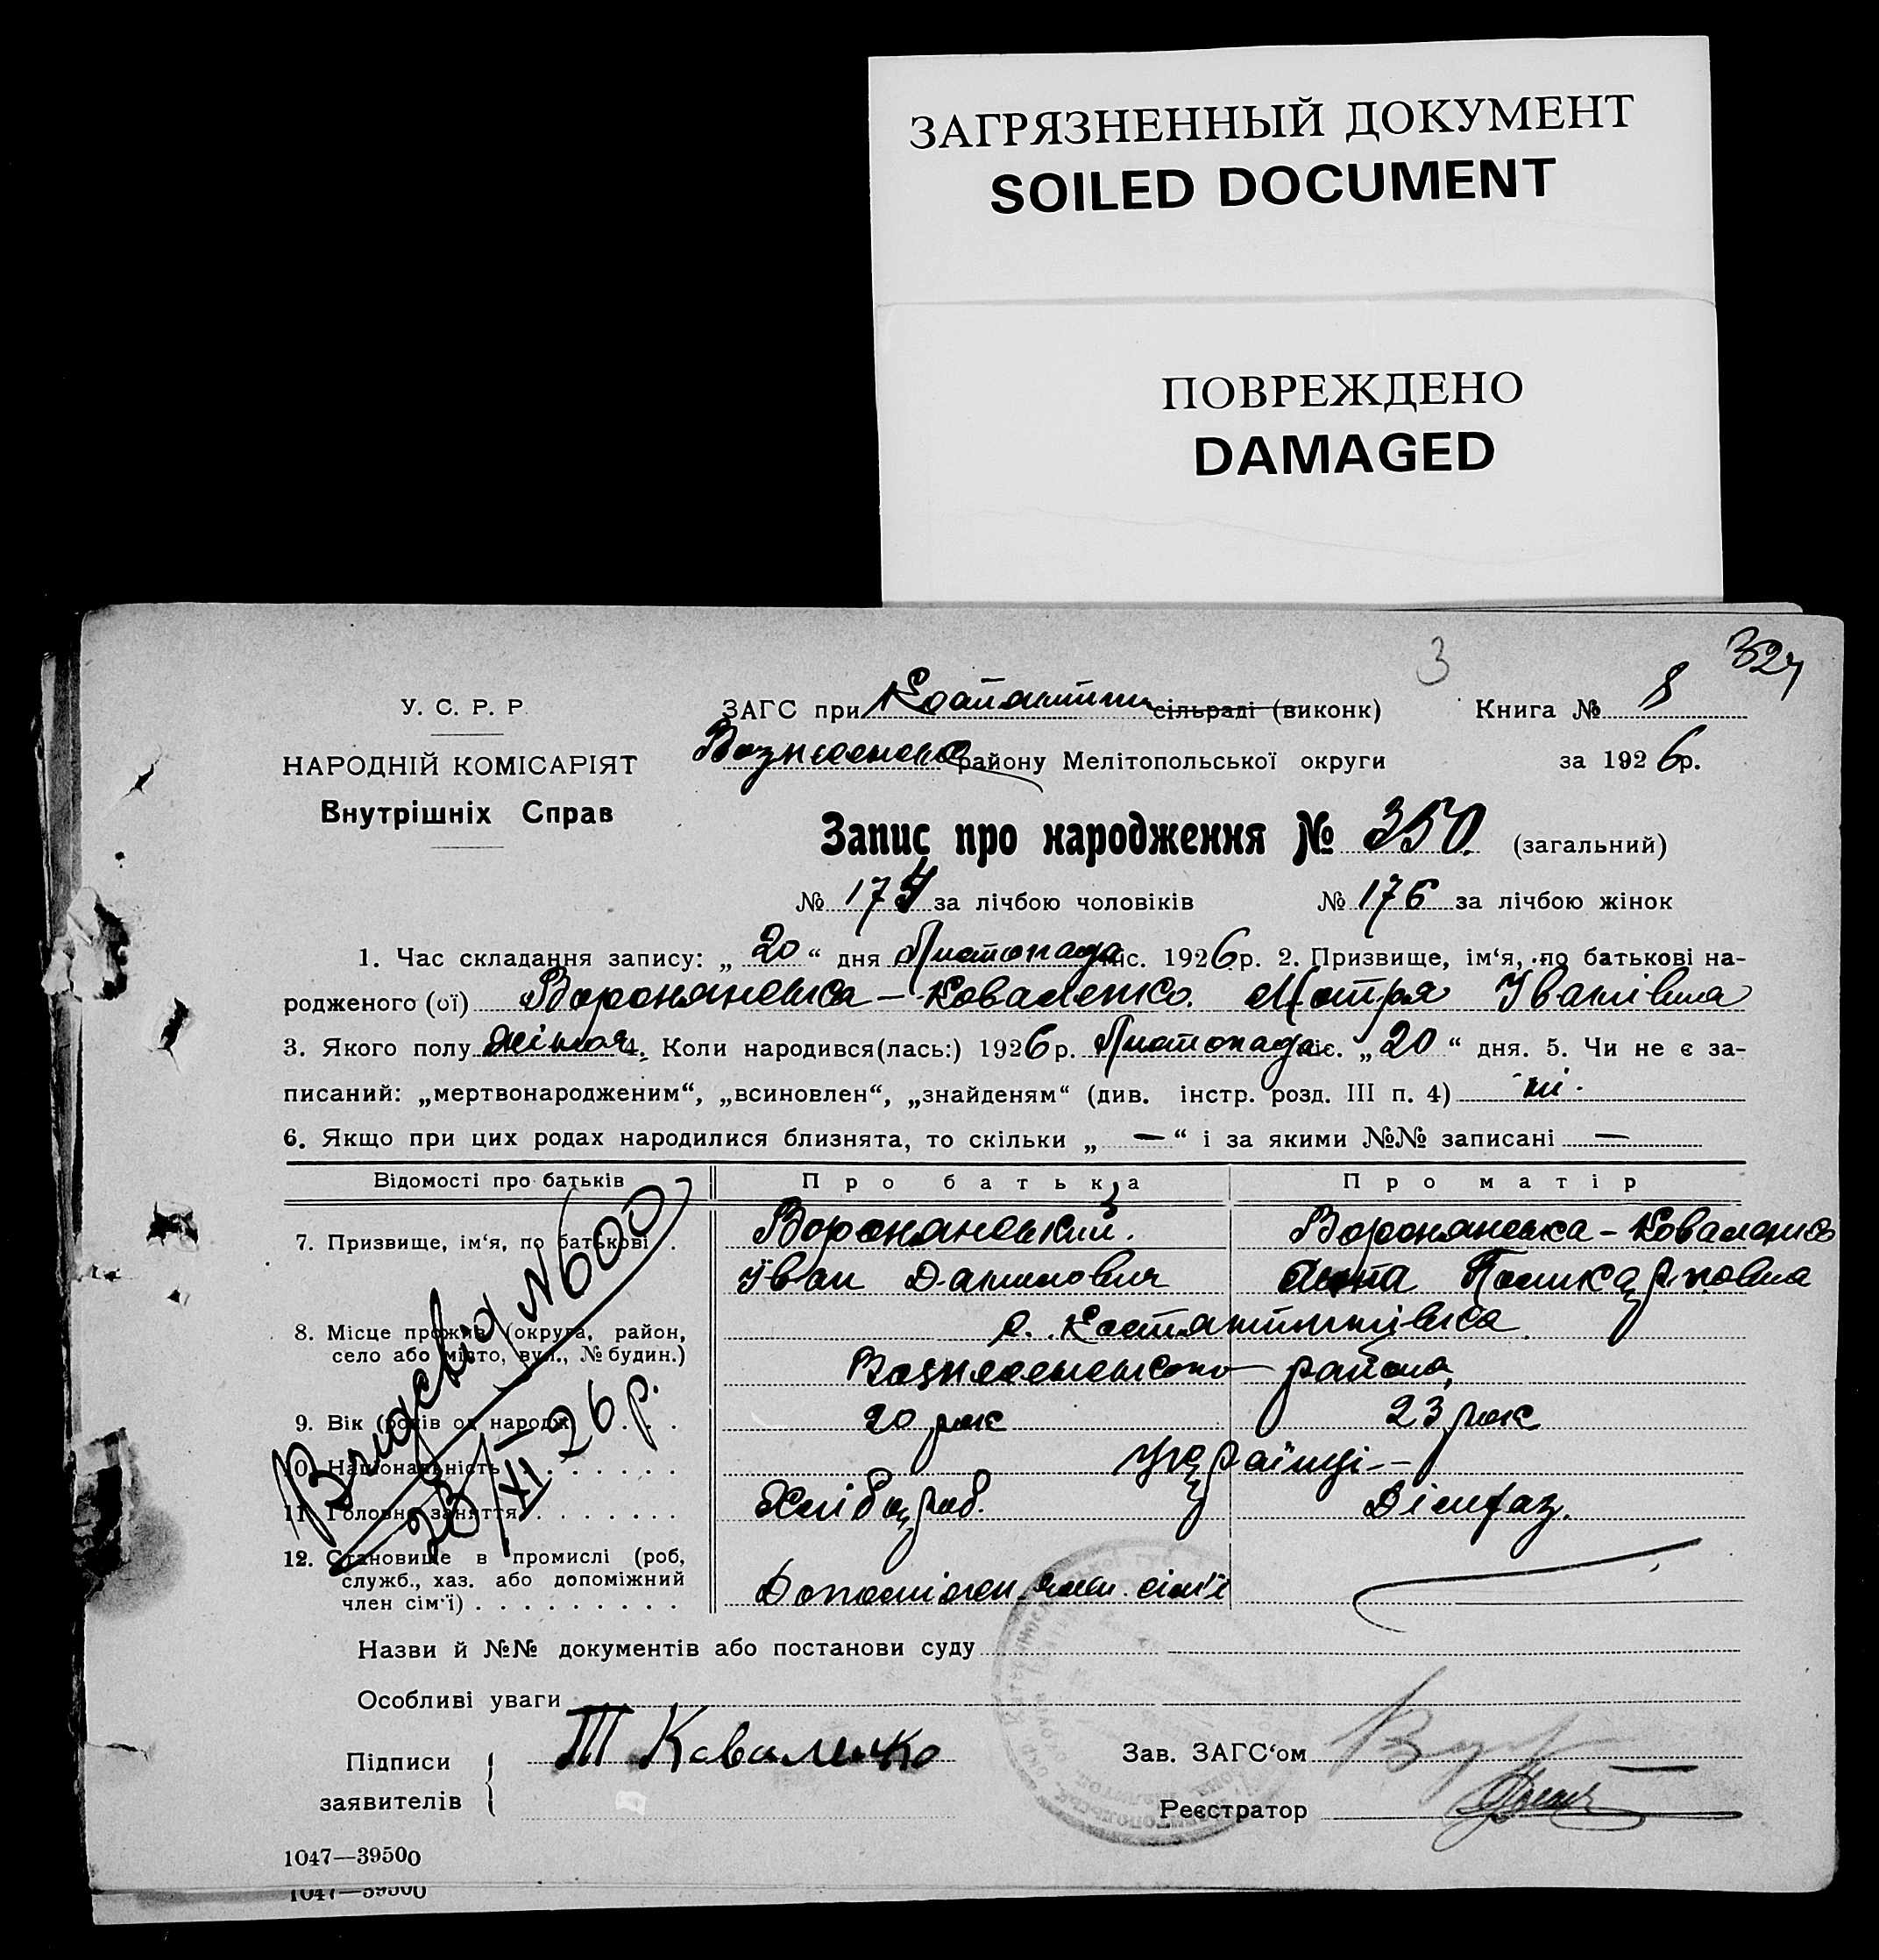 ЗАГРЯЗНЕННЫЙ ДОКУМЕНТ
SOILED DOCUMENT
ПОВРЕЖДЕНО
DAMAGED
3 327
У. С. Р. Р.
НАРОДНІЙ КОМІСАРІЯТ
Внутрішніх Справ
ЗАГС при Костянтин сільраді (виконк) Книга № 8
району Мелітопольської округи за 1926 р.
Запис про народження № 350. (загальний)
№ 174 за лічбою чоловіків № 176 за лічбою жінок
1. Час складання запису: „ 20 “ дня Листопада міс. 1926 р. 2. Призвище, ім‘я, по батькові на-
родженого (ої) Воронянська – Коваленко. Мотря Іванівна
3. Якого полу жіноч. 4. Коли народився(лась:) 1926 р. Листопада міс. „ 20 “ дня. 5. Чи не є за-
писаний: „мертвонародженим“, „всиновлен“, „знайденям“ (див. інстр. розд. III п. 4) ні.
6. Якщо при цих родах народилися близнята, то скільки „ — “ і за якими №№ записані —
Відомості про батьків Про батька Про матір
7. Призвище, ім‘я, по батькові . Воронянський. Воронянська – Коваленко
Іван Данилович Ганна Поликарповна
8. Місце прожив. (округа, район, с. Костянтинівка
село або місто, вул., № будин.) Вознесенського района,
9. Вік (років од народж.) . . . 20 рок 23 рок
10. Національність . . . . . . українці —
11. Головне заняття . . . . . . Хлібороб.
12. Становище в промислі (роб, служб., хаз. або допоміжний член сім‘ї) . . . . . . . . . Допоміжн. член. сім'ї
Видськ від N 600
23/XI 26 р.
Назви й №№ документів або постанови суду
Особливі уваги
Підписи заявителів Т Коваленко
Зав. ЗАГС‘ом
Реєстратор
1047—39500
1047—39500